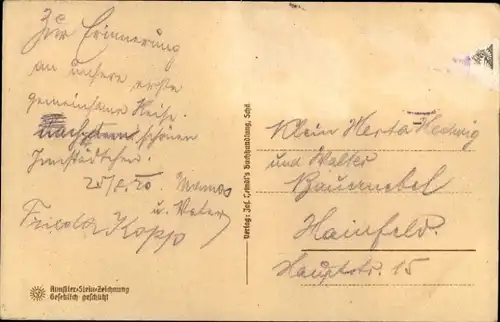 Zur Erinnerung
an unsere erste
gemeinsame Reise
nach dem schönen
25/8.20 Mamas
u. Vater
Frieda Kopp
Künstler-Stein-Zeichnung
Gesetzlich geschützt
Buchhandlung, Schil
Klein Herta Hedwig
und Walter
Bauernebel
Hainfeld.
Hauptstr. 15